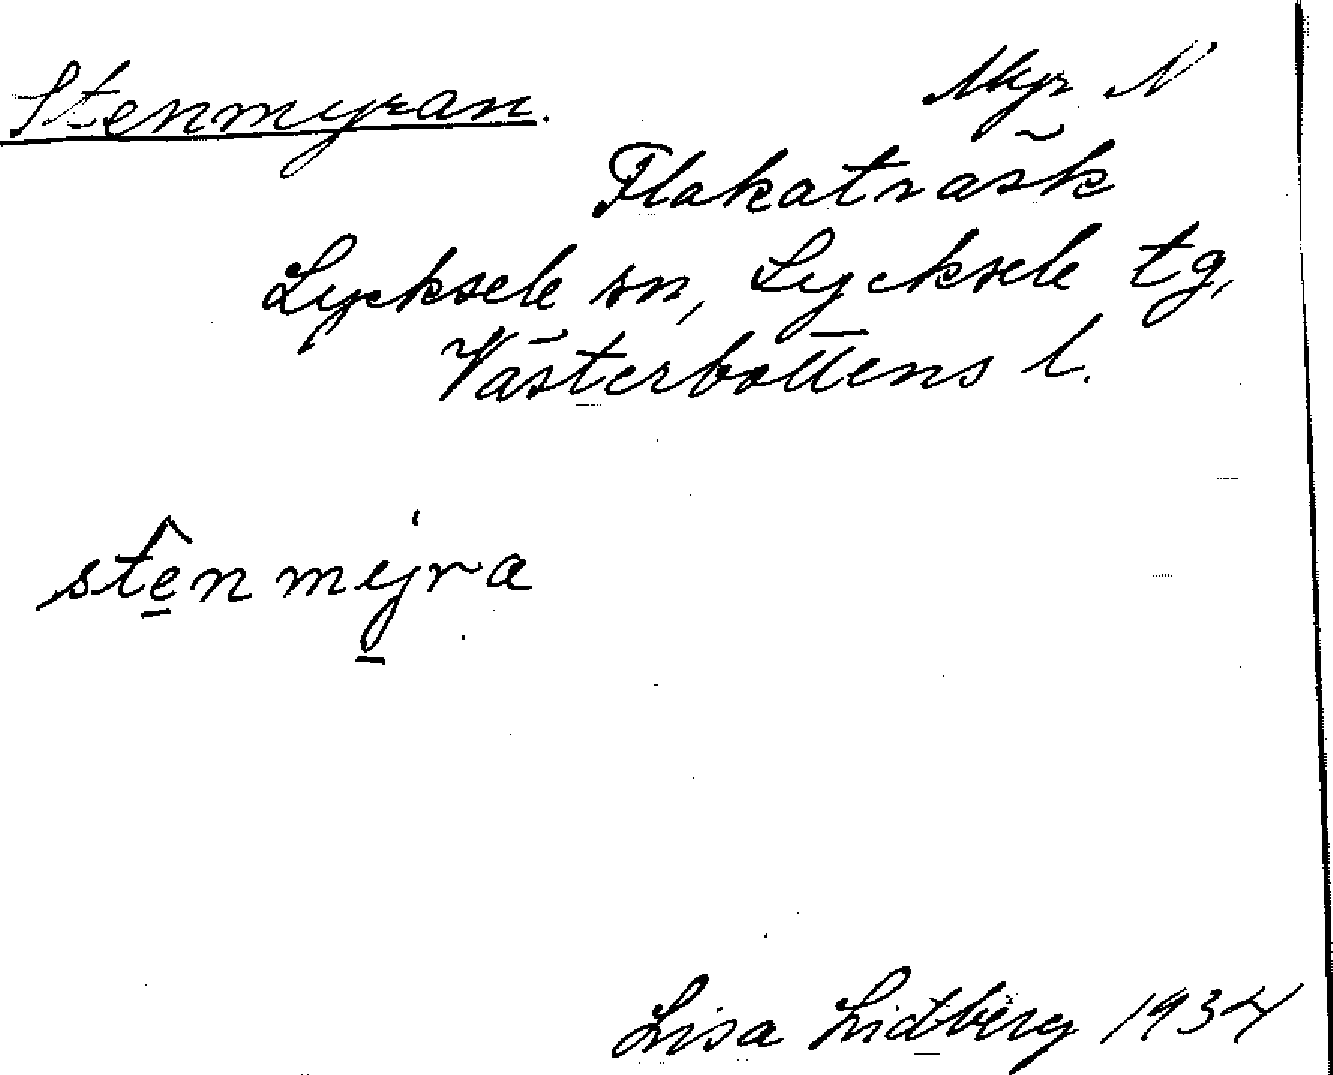 Stenmyran. Myr N
Flakaträsk
Lycksele sn, Lycksele tg,
Västerbottens l.
stenmyra
Lisa Lidberg 1934